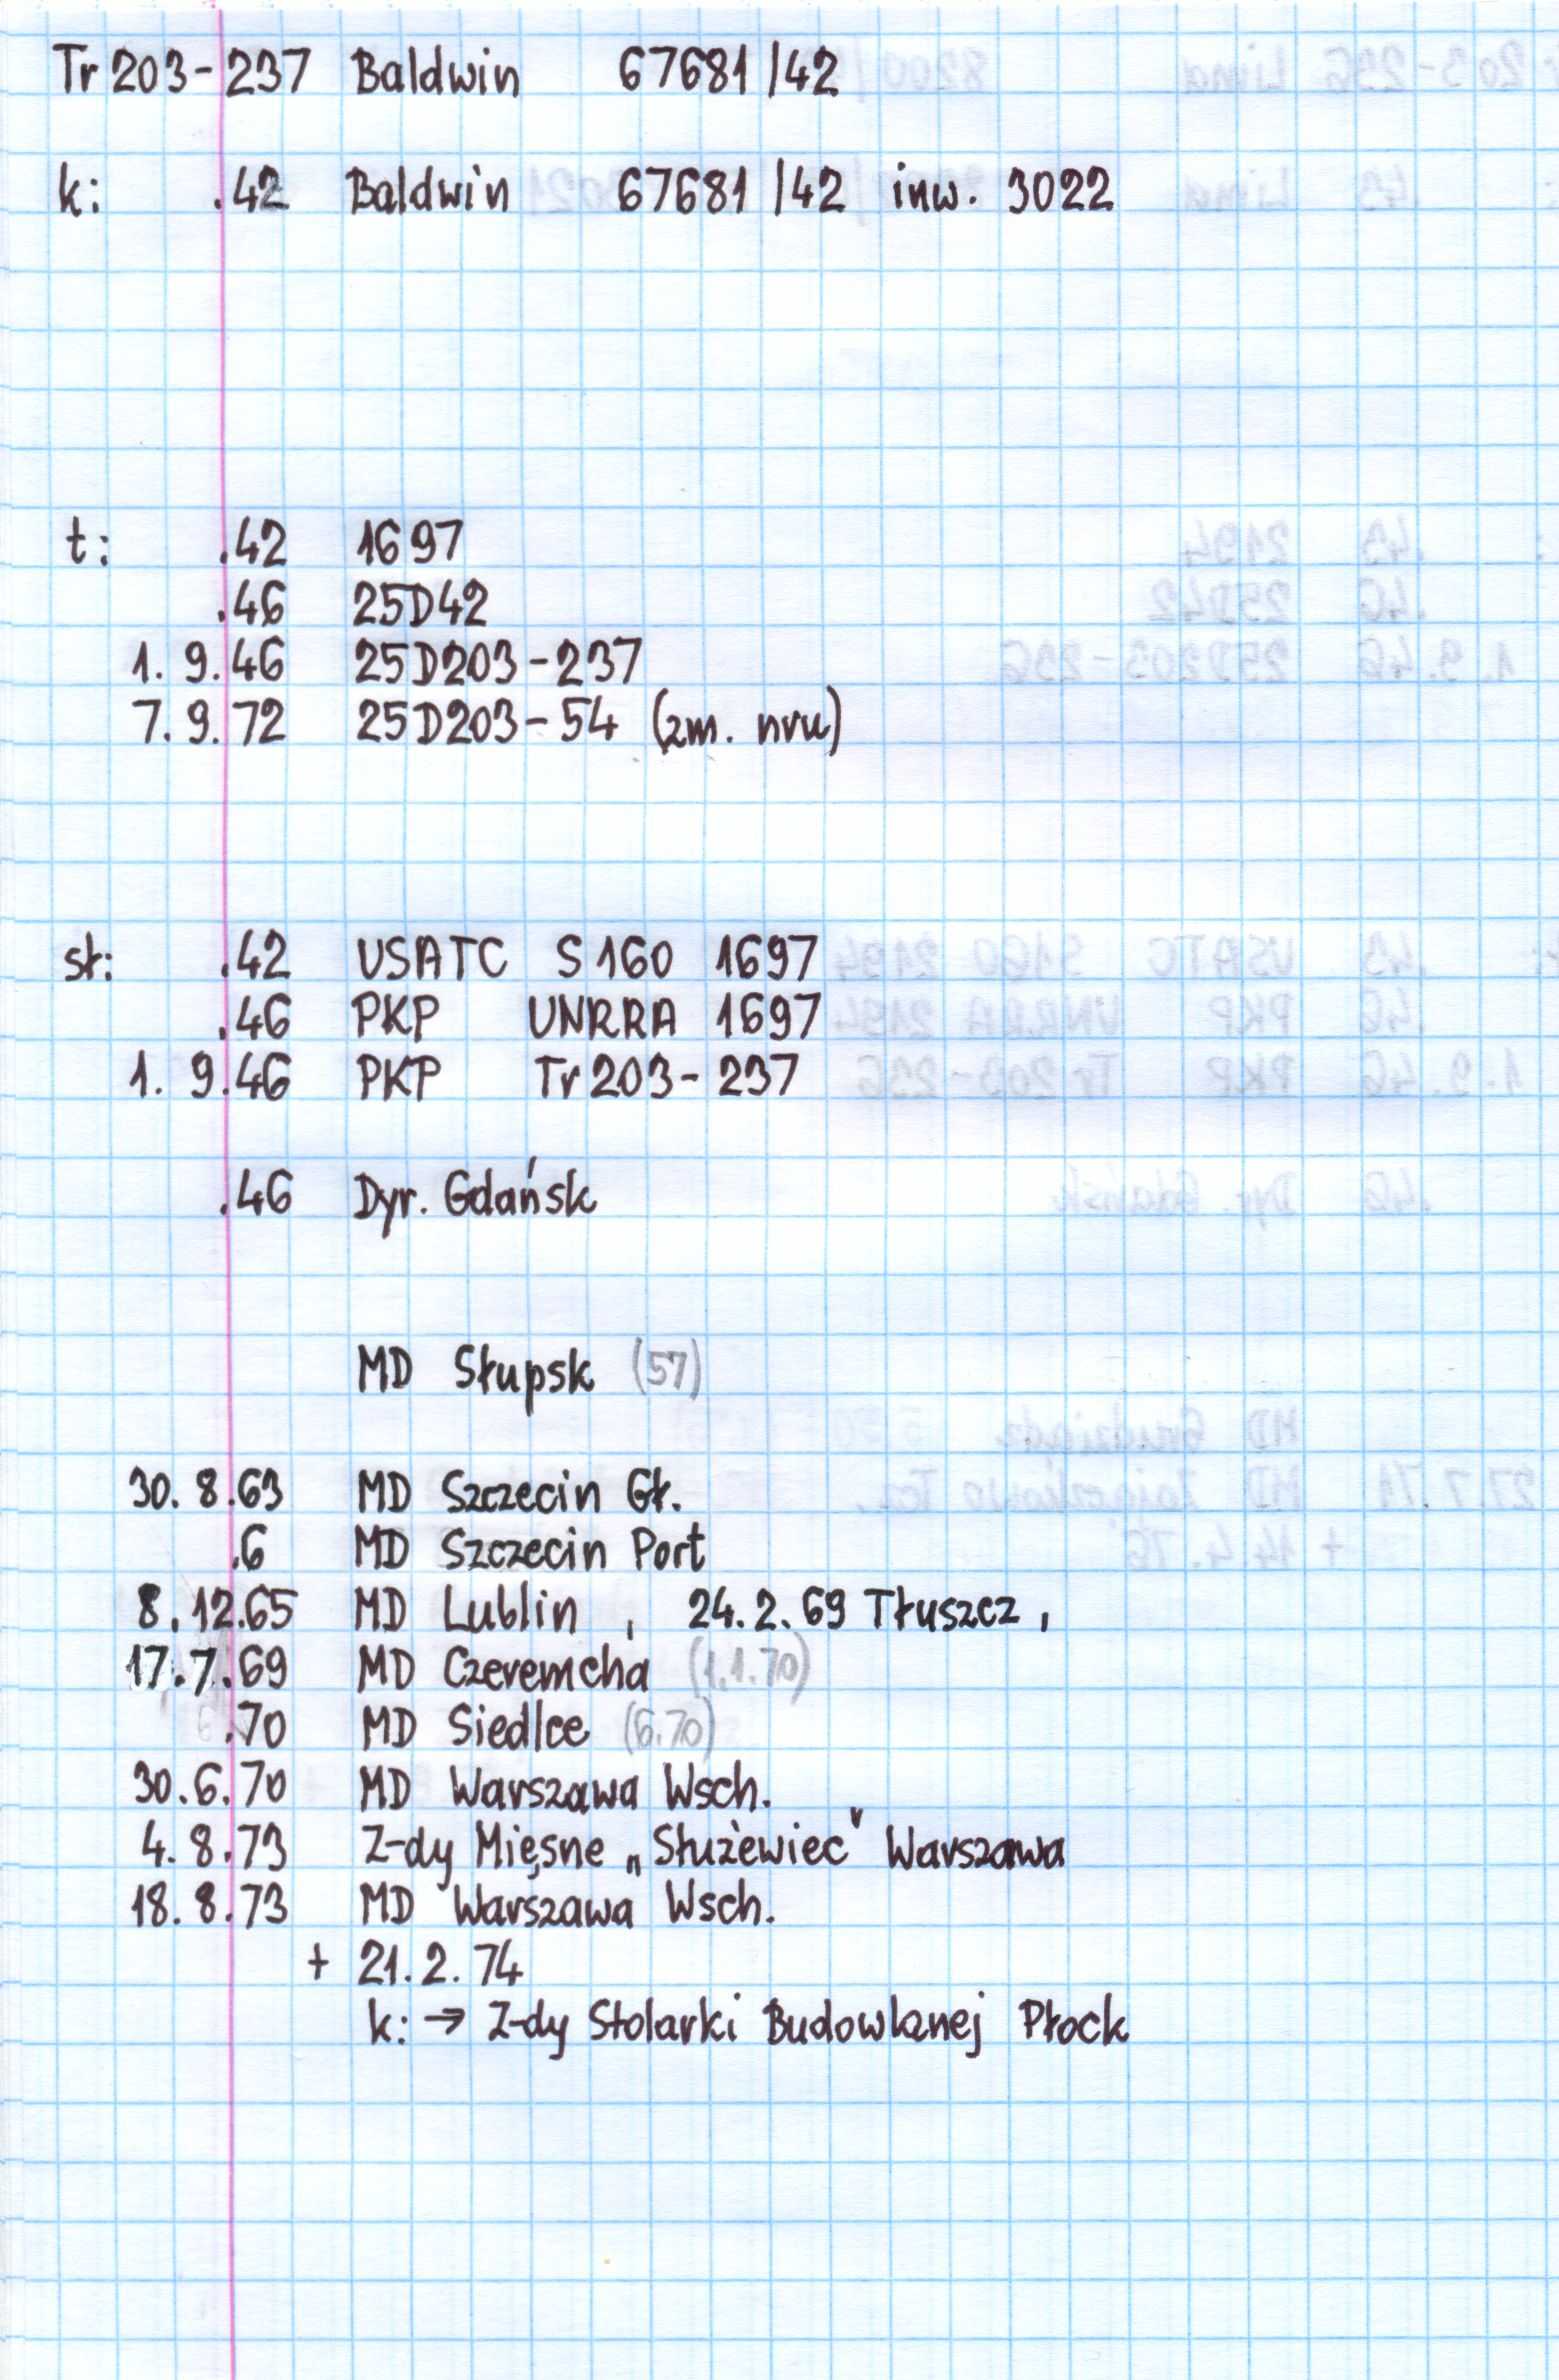 Tr 203-237 Baldwin 67681/42
k: .42 Baldwin 67681/42 inw. 3022
t: .42 1697
.46 25D42
1. 9.46 25D203-237
7. 9.72 25D203-54 (zm. nru)
st: .42 USATC S160 1697
.46 PKP UNRRA 1697
1. 9.46 PKP Tr203-237
.46 Dyr. Gdańsk
MD Słupsk (57)
30. 8.63 MD Szczecin Gł.
.6 MD Szczecin Port
8.12.65 MD Lublin , 24.2.69 Tłuszcz,
17.7.69 MD Czeremcha (1.1.70)
.70 MD Siedlce (6.70)
30.6.70 MD Warszawa Wsch.
4. 8.73 Z-dy Mięsne „Służewiec" Warszawa
18. 8.73 MD Warszawa Wsch.
+ 21.2.74
k: → Z-dy Stolarki Budowlanej Płock